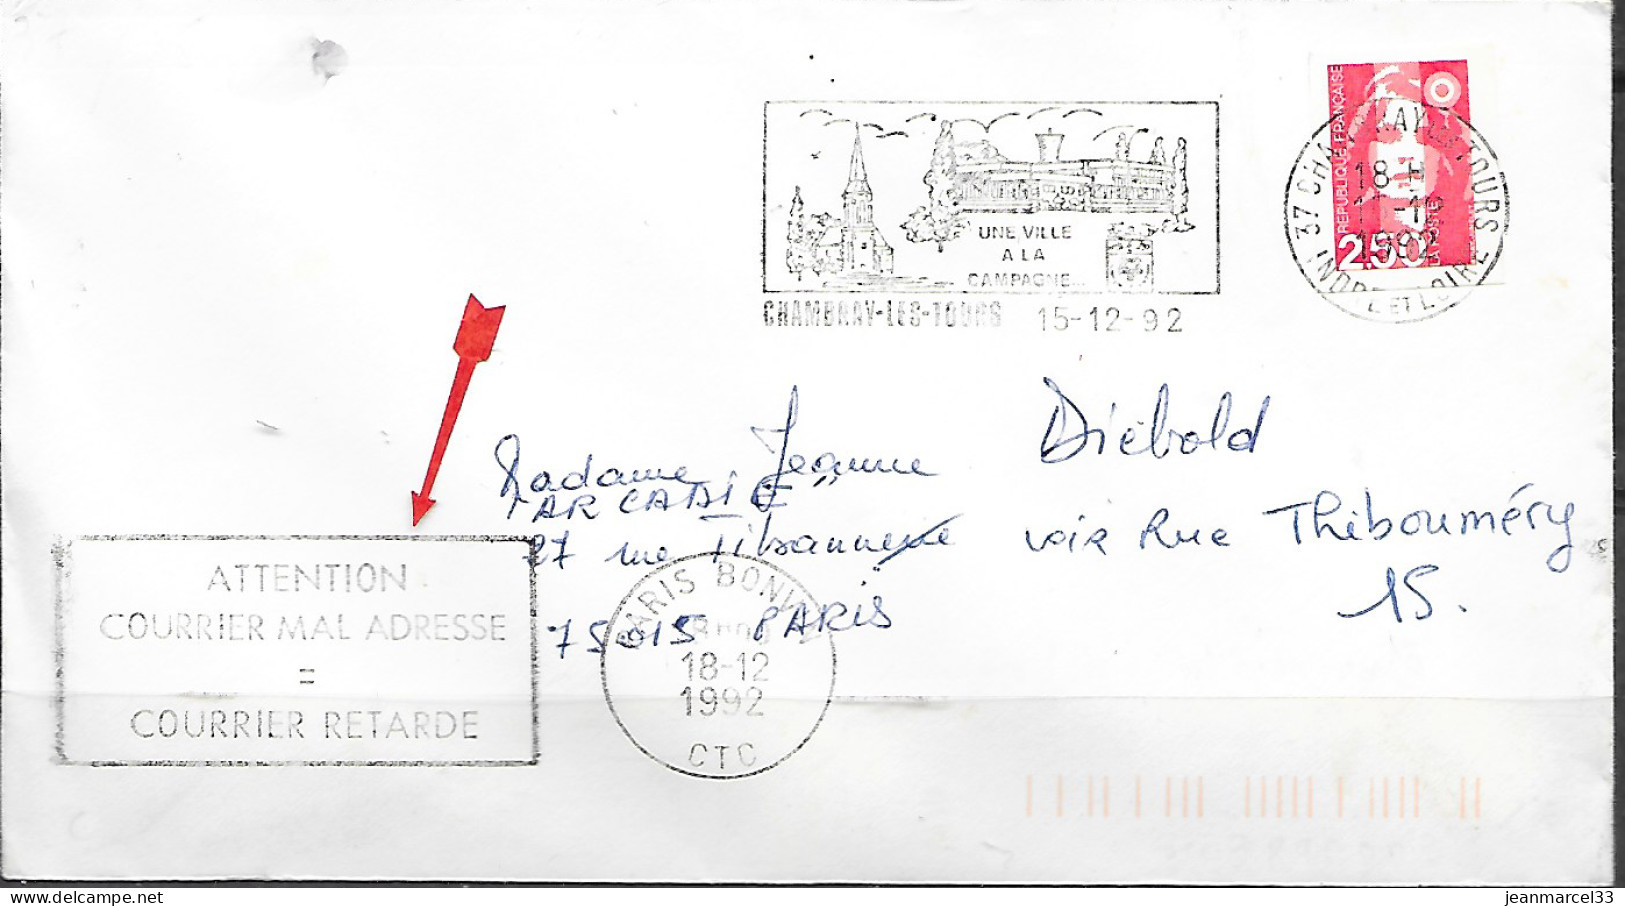 RÉPUBLIQUE FRANÇAISE
2.50
LA POSTE
37 CHAMBRAY LES TOURS
18 H
1992
INDRE ET LOIRE
UNE VILLE
A LA
CAMPAGNE...
CHAMBRAY-LES-TOURS 15-12-92
Madame Jeanne Diébold
"ARCADIE"
27 rue voir Rue Thiboumery
75015 PARIS 15.
ATTENTION
COURRIER MAL ADRESSE
=
COURRIER RETARDE
PARIS BONVIN
18-12
1992
CTC
jeanmarcel33